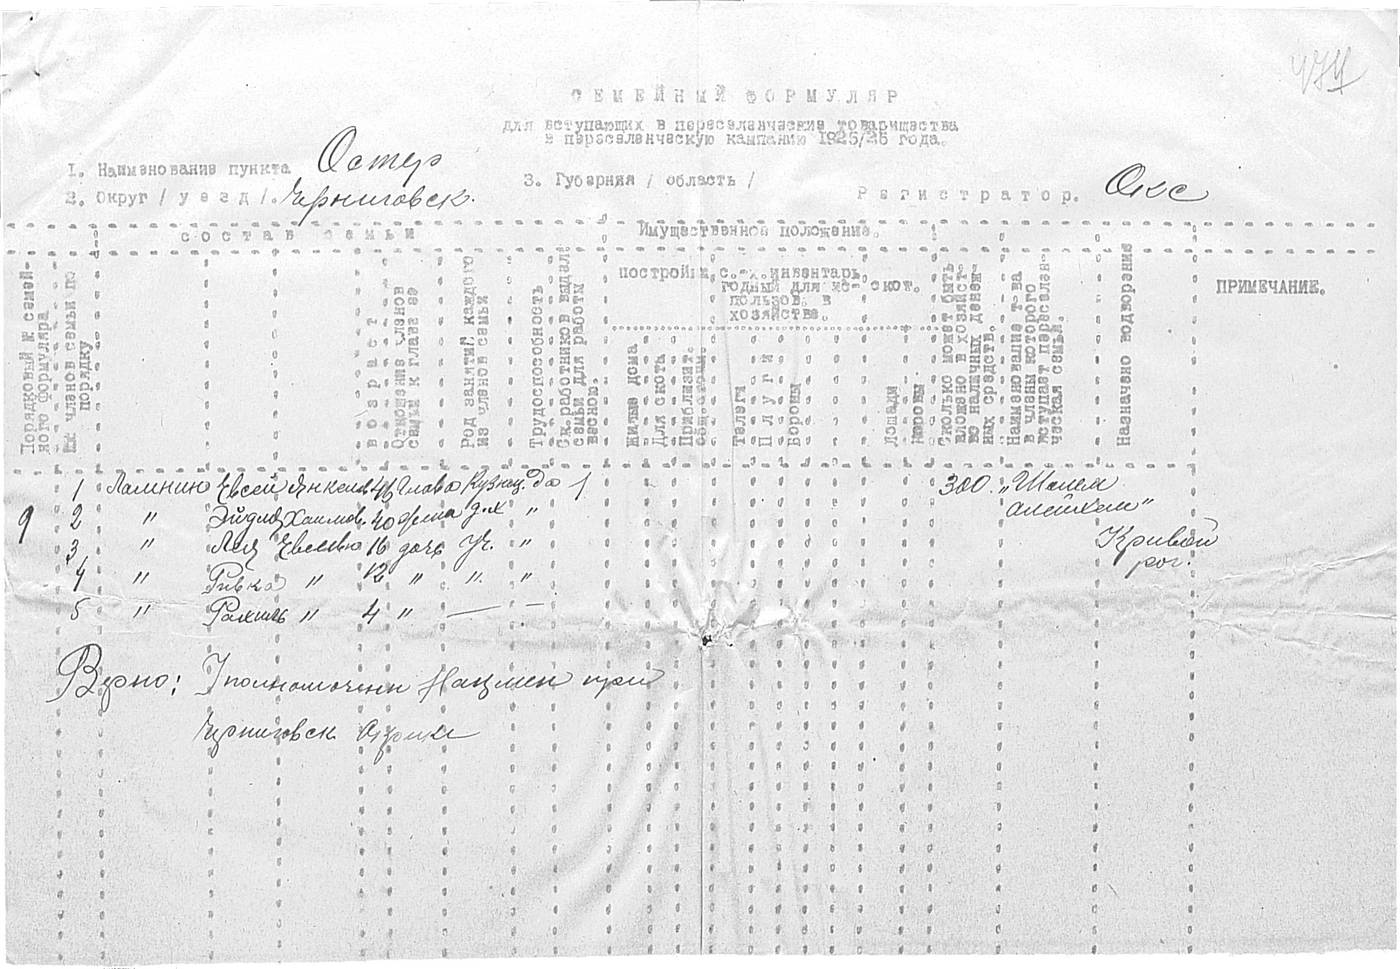 474
СЕМЕЙНЫЙ ФОРМУЛЯР
для вступающих в переселенческие товарищества
в переселенческую кампанию 1925/26 года.
1. Наименование пункта Остер
2. Округ / уезд /. Черниговск.
3. Губерния / область /
Регистратор. Окс
состав семьи
Имущественное положение.
Порядковый № семейного формуляра
№№ членов семьи по порядку
возраст
Отношение членов семьи к главе ее
Род занятий каждого из членов семьи
Трудоспособность
Ск. работников выдел. семьи для работы весною.
постройки с.-х. инвентарь, годный для использов. в хозяйстве.
скот.
Жилые дома
Для скота
Приблизит. общ. стоим.
Телеги
Плуги
Бороны
Лошади
Коровы
Сколько может быть вложено в хозяйство наличных денежных средств.
Наименование т-ва в члены которого вступает переселенческая семья.
Назначено водворение
ПРИМЕЧАНИЕ.
9
1 Ламнин Евсей Янкелев 46 Глава Кузнец. да 1 300. "Шолем
2 " Эйдля Хаимов. 40 жена д.х " Алейхем"
3 " Лея Евсеевна 16 дочь Уч. " Кривой
4 " Ривка " 12 " ". " рог.
5 " Рахиль " 4 " — —
Верно: Уполномоченн Нацмен при
Черниговск